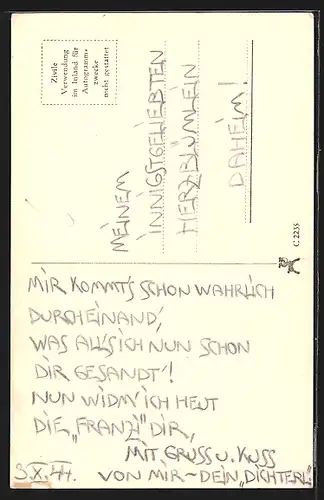 Zivile
Verwendung
im Inland für
Autogramm-
zwecke
nicht gestattet
MEINEM
INNIGSTGELIEBTEN
HERZBLÜMLEIN
DAHEIM!
C 2235
MIR KOMMT'S SCHON WAHRLICH
DURCHEINAND',
WAS ALL'SICH NUN SCHON
DIR GESANDT'!
NUN WIDM' ICH HEUT
DIE „FRANZI" DIR,
MIT GRUSS U. KUSS
VON MIR ~ DEIN „DICHTERL"
3.X.44.